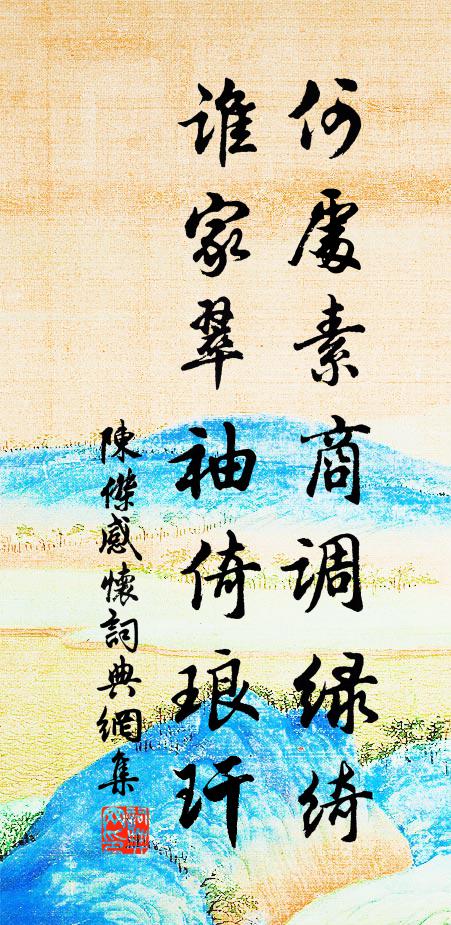 何處素商調綠綺
誰家翠袖倚琅玕
陳傑感懷詞典網集